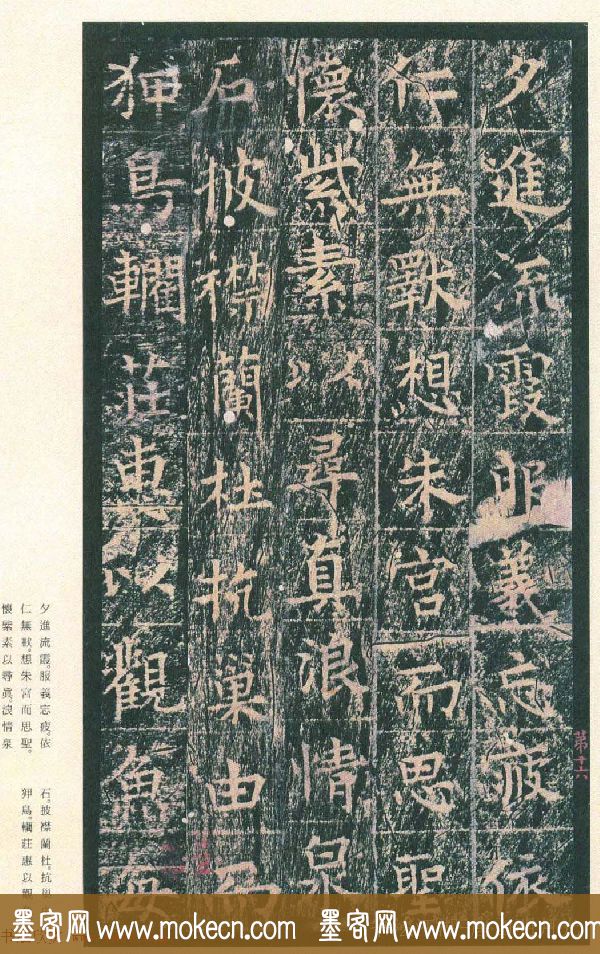 夕進流霞服義忘疲依
仁無猒想朱宮而思聖
懷紫素以尋真浪情泉
石披襟蘭杜抗巢由而
狎鳥莊惠以觀魚每
第十六
夕進流霞。服義忘疲。依
仁無猒。想朱宮而思聖。
懷紫素以尋眞。浪情泉
石。披襟蘭杜。抗
狎鳥。莊惠以觀
墨客网 www.mokecn.com 墨客网 www.mokecn.com